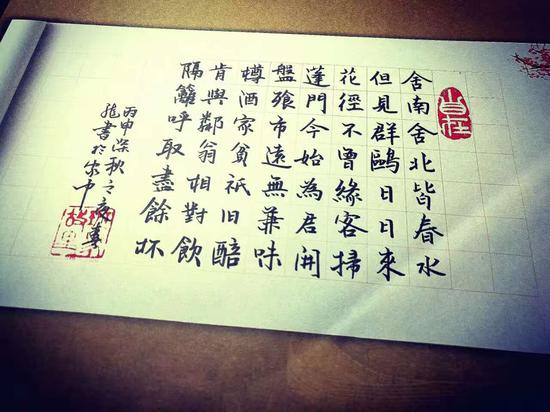 自在
舍南舍北皆春水
但見群鷗日日來
花徑不曾緣客掃
蓬門今始為君開
盤飧市遠無兼味
樽酒家貧祇旧醅
肯與鄰翁相對飲
隔籬呼取盡餘杯
丙申深秋之夜
龍書於家中